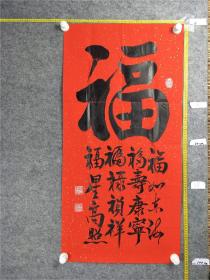 福
福如东海
福寿康宁
福禄祯祥
福星高照